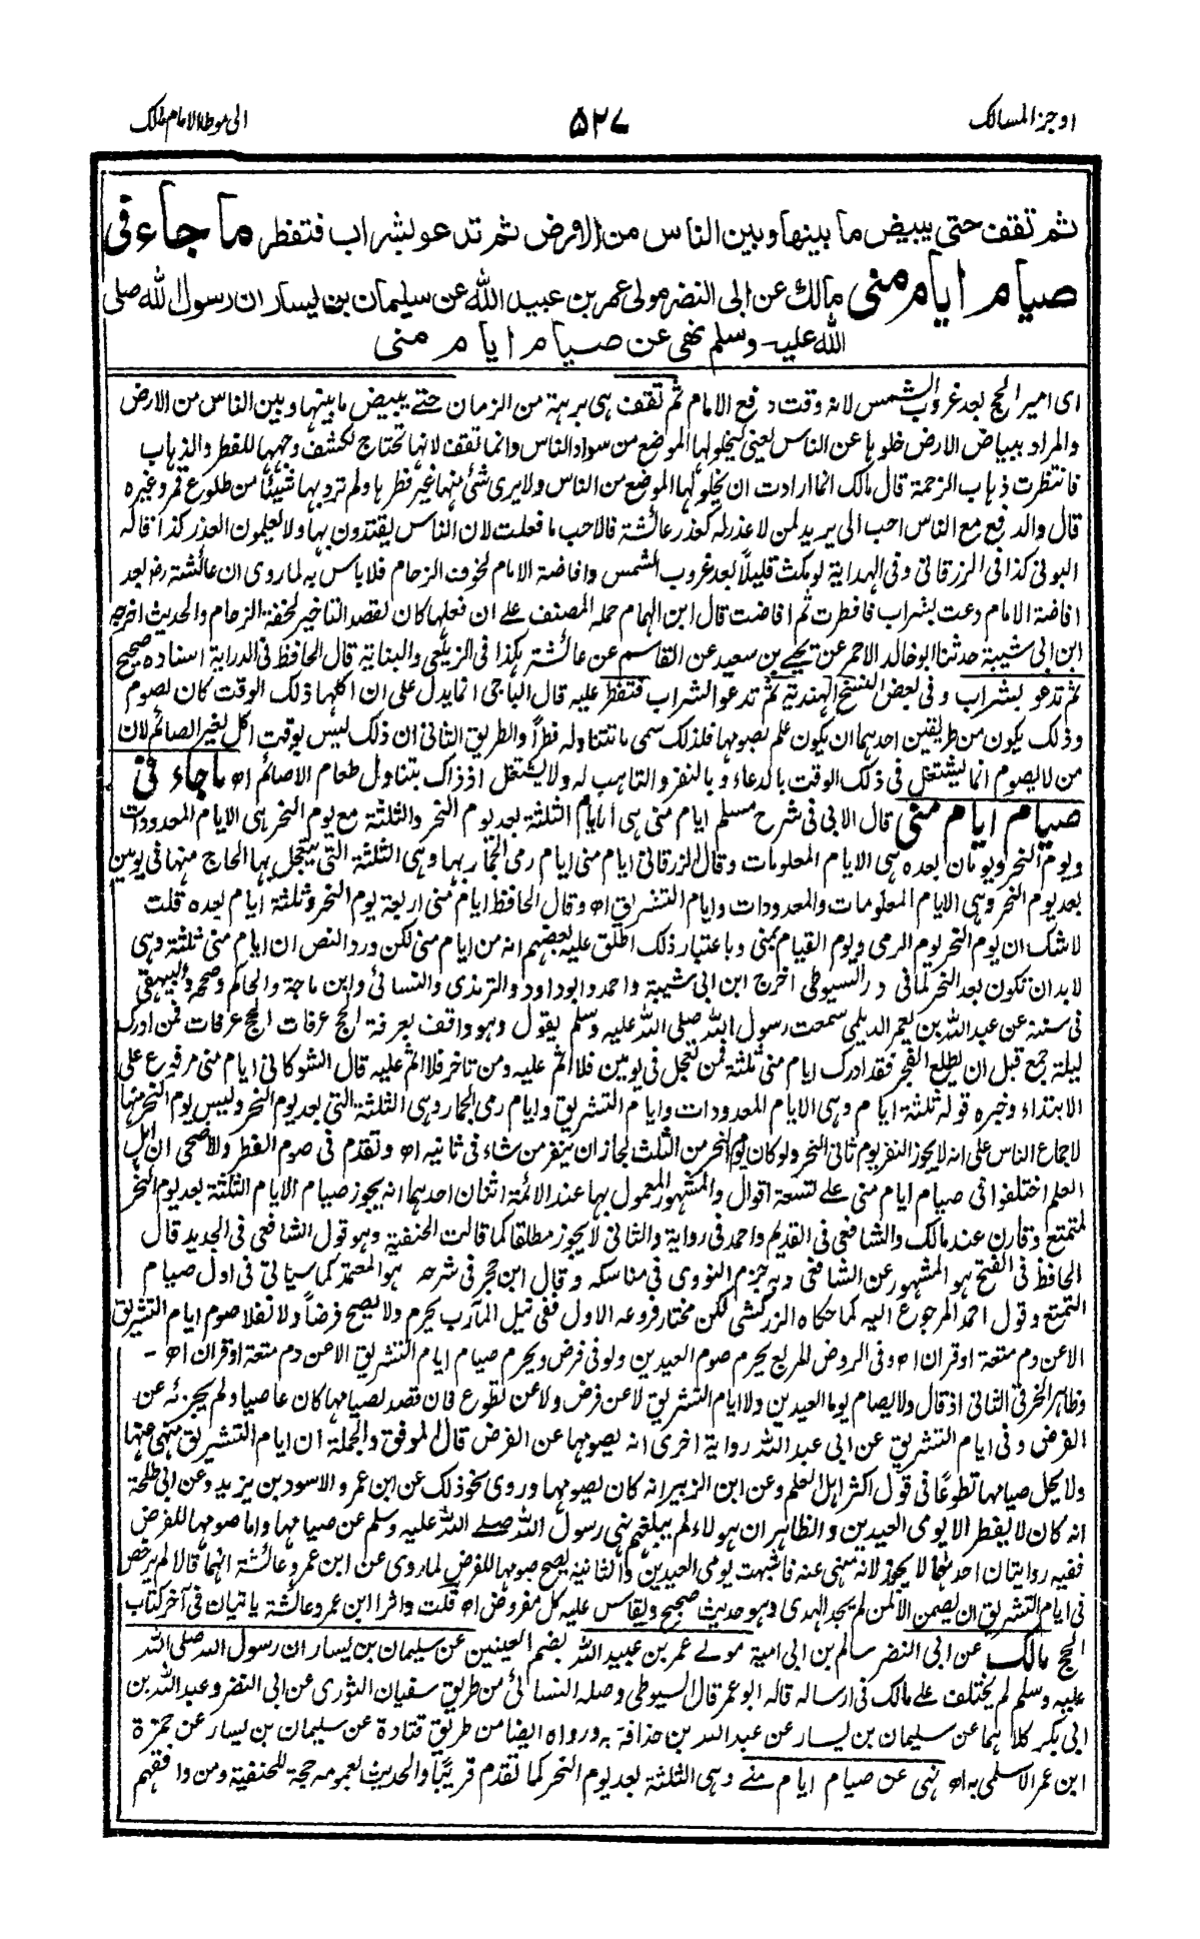 اوجز المسالك
٥٢٧
الى موطا الامام مالك
ثم تقف حتى يبيض ما بينها وبين الناس من الارض ثم تدعو بشراب فتفطر ما جاء في
صيام ايام منى مالك عن ابى النضر مولى عمر بن عبيد الله عن سليمان بن يسار ان رسول الله صلى
الله عليه وسلم نهى عن صيام ايام منى
اى امير الحج بعد غروب الشمس لانه وقت دفع الامام ثم تقف هى برهة من الزمان حتے يبيض ما بينها وبين الناس من الارض
والمراد ببياض الارض خلوها عن الناس يعنى ليخلو لها الموضع من سواد الناس وانما تقف لانها تحتاج لكشف وجهها للفطر والذهاب
فانتظرت ذهاب الزحمة قال مالك انما ارادت ان يخلو لها الموضع من الناس ولا يرى شئ منها غير فطرها ولم ترد بها شيئا من طلوع قمر وغيره
قال والدفع مع الناس احب الى يريد لمن لا عذر له كعذر عائشة فالاحب ما فعلت لان الناس يقتدون بها ولا يعلمون العذر كذا قاله
البونى كذا فى الزرقانى وفى الهداية لو مكث قليلاً بعد غروب الشمس وافاضة الامام لخوف الزحام فلا باس به لما روى ان عائشة رض بعد
افاضة الامام دعت بشراب فافطرت ثم افاضت قال ابن الهمام حمله المصنف علے ان فعلها كان لقصد التاخير لخفة الزحام والحديث اخرجه
ابن ابى شيبة حدثنا ابو خالد الاحمر عن يحيے بن سعيد عن القاسم عن عائشة هكذا فى الزيلعى والبناية قال الحافظ فى الدراية اسناده صحيح
ثم تدعو بشراب وفى بعض النسخ الهندية ثم تدعو الشراب فتفطر عليه قال الباجى انما يدل على ان اكلها ذلك الوقت كان لصوم
وذلك يكون من طريقين احدهما ان يكون علم بصومها فلذلك سمى ما تتناوله فطراً والطريق الثانى ان ذلك ليس بوقت اكل لغير الصائم لان
من لا يصوم انما يشتغل فى ذلك الوقت بالدعاء و بالنفر والتاهب له ولا يشتغل اذ ذاك بتناول طعام الا صائم اھ ما جاء فى
صيام ايام منى قال الابى فى شرح مسلم ايام منى هى الايام الثلثة بعد يوم النحر والثلثة مع يوم النحر هى الايام المعدودات
ويوم النحر ويومان بعده هى الايام المعلومات وقال الزرقانى ايام منى ايام رمى الجمار بها وهى الثلثة التى يتعجل بها الحاج منها فى يومين
بعد يوم النحر وهى الايام المعلومات والمعدودات وايام التشريق اھ وقال الحافظ ايام منى اربعة يوم النحر وثلثة ايام بعده قلت
لا شك ان يوم النحر يوم الرمى ويوم القيام بمنى وباعتبار ذلك اطلق عليه بعضهم انه من ايام منى لكن ورد النص ان ايام منى ثلثة وهى
لا بد ان تكون بعد النحر لما فى در السيوطى اخرج ابن ابى شيبة واحمد وابو داود والترمذى والنسائى وابن ماجة والحاكم وصححه والبيهقى
فى سننه عن عبد الله بن يعمر الديلى سمعت رسول الله صلى الله عليه وسلم يقول وهو واقف بعرفة الحج عرفات الحج عرفات فمن ادرك
ليلة جمع قبل ان يطلع الفجر فقد ادرك ايام منى ثلثة فمن تعجل فى يومين فلا اثم عليه ومن تاخر فلا اثم عليه قال الشوكانى ايام منى مرفوع على
الابتداء وخبره قوله ثلثة ايام وهى الايام المعدودات وايام التشريق وايام رمى الجمار وهى الثلثة التى بعد يوم النحر وليس يوم النحر منها
لاجماع الناس على انه لا يجوز النفر يوم ثانى النحر ولو كان يوم النحر من الثلث لجاز ان ينفر من شاء فى ثانيه اھ وتقدم فى صوم الفطر والاضحى ان اهل
العلم اختلفوا فى صيام ايام منى علے تسعة اقوال والمشهور المعمول بها عند الائمة اثنان احدهما انه يجوز صيام الايام الثلثة بعد يوم النحر
لمتمتع وقارن عند مالك والشافعى فى القديم واحمد فى رواية والثانى لا يجوز مطلقا كما قالت الحنفية وهو قول الشافعى فى الجديد قال
الحافظ فى الفتح هو المشهور عن الشافعى وبه جزم النووى فى مناسكه وقال ابن حجر فى شرحه هو المعتمد كما سياتى فى اول صيام
التمتع وقول احمد المرجوع اليه كما حكاه الزركشى لكن مختار فروعه الاول ففى نيل المآرب يحرم ولا يصح فرضاً ولا نفلا صوم ايام التشريق
الا عن دم متعة او قران اھ وفى الروض المربع يحرم صوم العيدين ولو فى فرض ويحرم صيام ايام التشريق الا عن دم متعة او قران اھ -
وظاهر الخرقى الثانى اذ قال ولا يصام يوما العيدين ولا ايام التشريق لا عن فرض ولا عن تطوع فان قصد لصيامها كان عاصيا ولم يجزئه عن
الفرض وفى ايام التشريق عن ابى عبد الله رواية اخرى انه يصومها عن الفرض قال الموفق والجملة ان ايام التشريق منهى عنها
ولا يحل صيامها تطوعًا فى قول اكثر اهل العلم وعن ابن الزبير انه كان يصومها وروى نحو ذلك عن ابن عمر والاسود بن يزيد وعن ابى طلحة
انه كان لا يفطر الا يومى العيدين والظاهر ان هولاء لم يبلغهم نهى رسول الله صلے الله عليه وسلم عن صيامها واما صومها للفرض
ففيه روايتان احدهما لا يجوز لانه منهى عنه فاشبهت يومى العيدين والثانية يصح صومها للفرض لما روى عن ابن عمر وعائشة انهما قالا لم يرخص
فى ايام التشريق ان يصمن الا لمن لم يجد الهدى وهو حديث صحيح ويقاس عليه كل مفروض اھ قلت واثرا ابن عمر وعائشة ياتيان فى آخر كتاب
الحج مالك عن ابى النضر سالم بن ابى امية مولے عمر بن عبيد الله بضم العينين عن سليمان بن يسار ان رسول الله صلى الله
عليه وسلم لم يختلف علے مالك فى ارساله قاله ابو عمر قال السيوطى وصله النسائى من طريق سفيان الثورى عن ابى النضر وعبد الله بن
ابى بكر كلاهما عن سليمان بن يسار عن عبد الله بن حذافة به ورواه ايضا من طريق قتادة عن سليمان بن يسار عن حمزة
ابن عمر الاسلمى به اھ نهى عن صيام ايام منے وهى الثلثة بعد يوم النحر كما تقدم قريبًا والحديث بعمومه حجة للحنفية ومن وافقهم